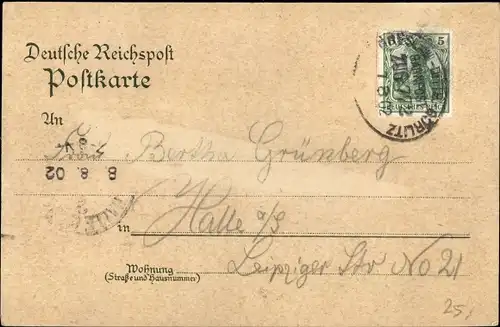 Deutsche Reichspost
Postkarte
5
GÖRLITZ
ZUG
An
Frau Bertha Grünberg
8. 8. 02
HALLE
in Halle a/S
Wohnung
(Straße und Hausnummer)
Leipziger Str No 21
25,